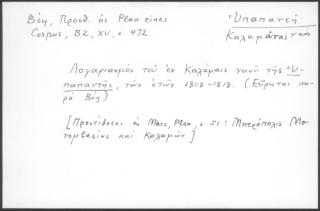 Βέη, Προσθ. εἰς Plan eines
Corpus, BZ, XV, σ. 472
Ὑπαπαντή
Καλαμάτας ναὸς
Λογαριασμὸς τοῦ ἐν Καλάμαις ναοῦ τῆς Ὑ-
παπαντῆς, τῶν ἐτῶν 1808-1813. (Εὕρηται πα-
ρὰ Βέῃ)
[Προστίθεται ἐν Marc, Plan, σ. 51: Μητρόπολις Μο-
νεμβασίας καὶ Καλαμῶν]